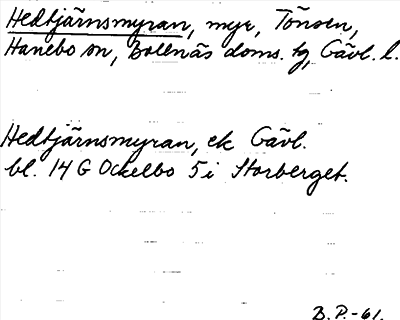 Hedtjärnsmyran, myr, Tönsen,
Hanebo sn, Bollnäs doms. tg, Gävl. l.
Hedtjärnsmyran, ek Gävl.
bl. 14 G Ockelbo 5 i Storberget.
B. P. -61.